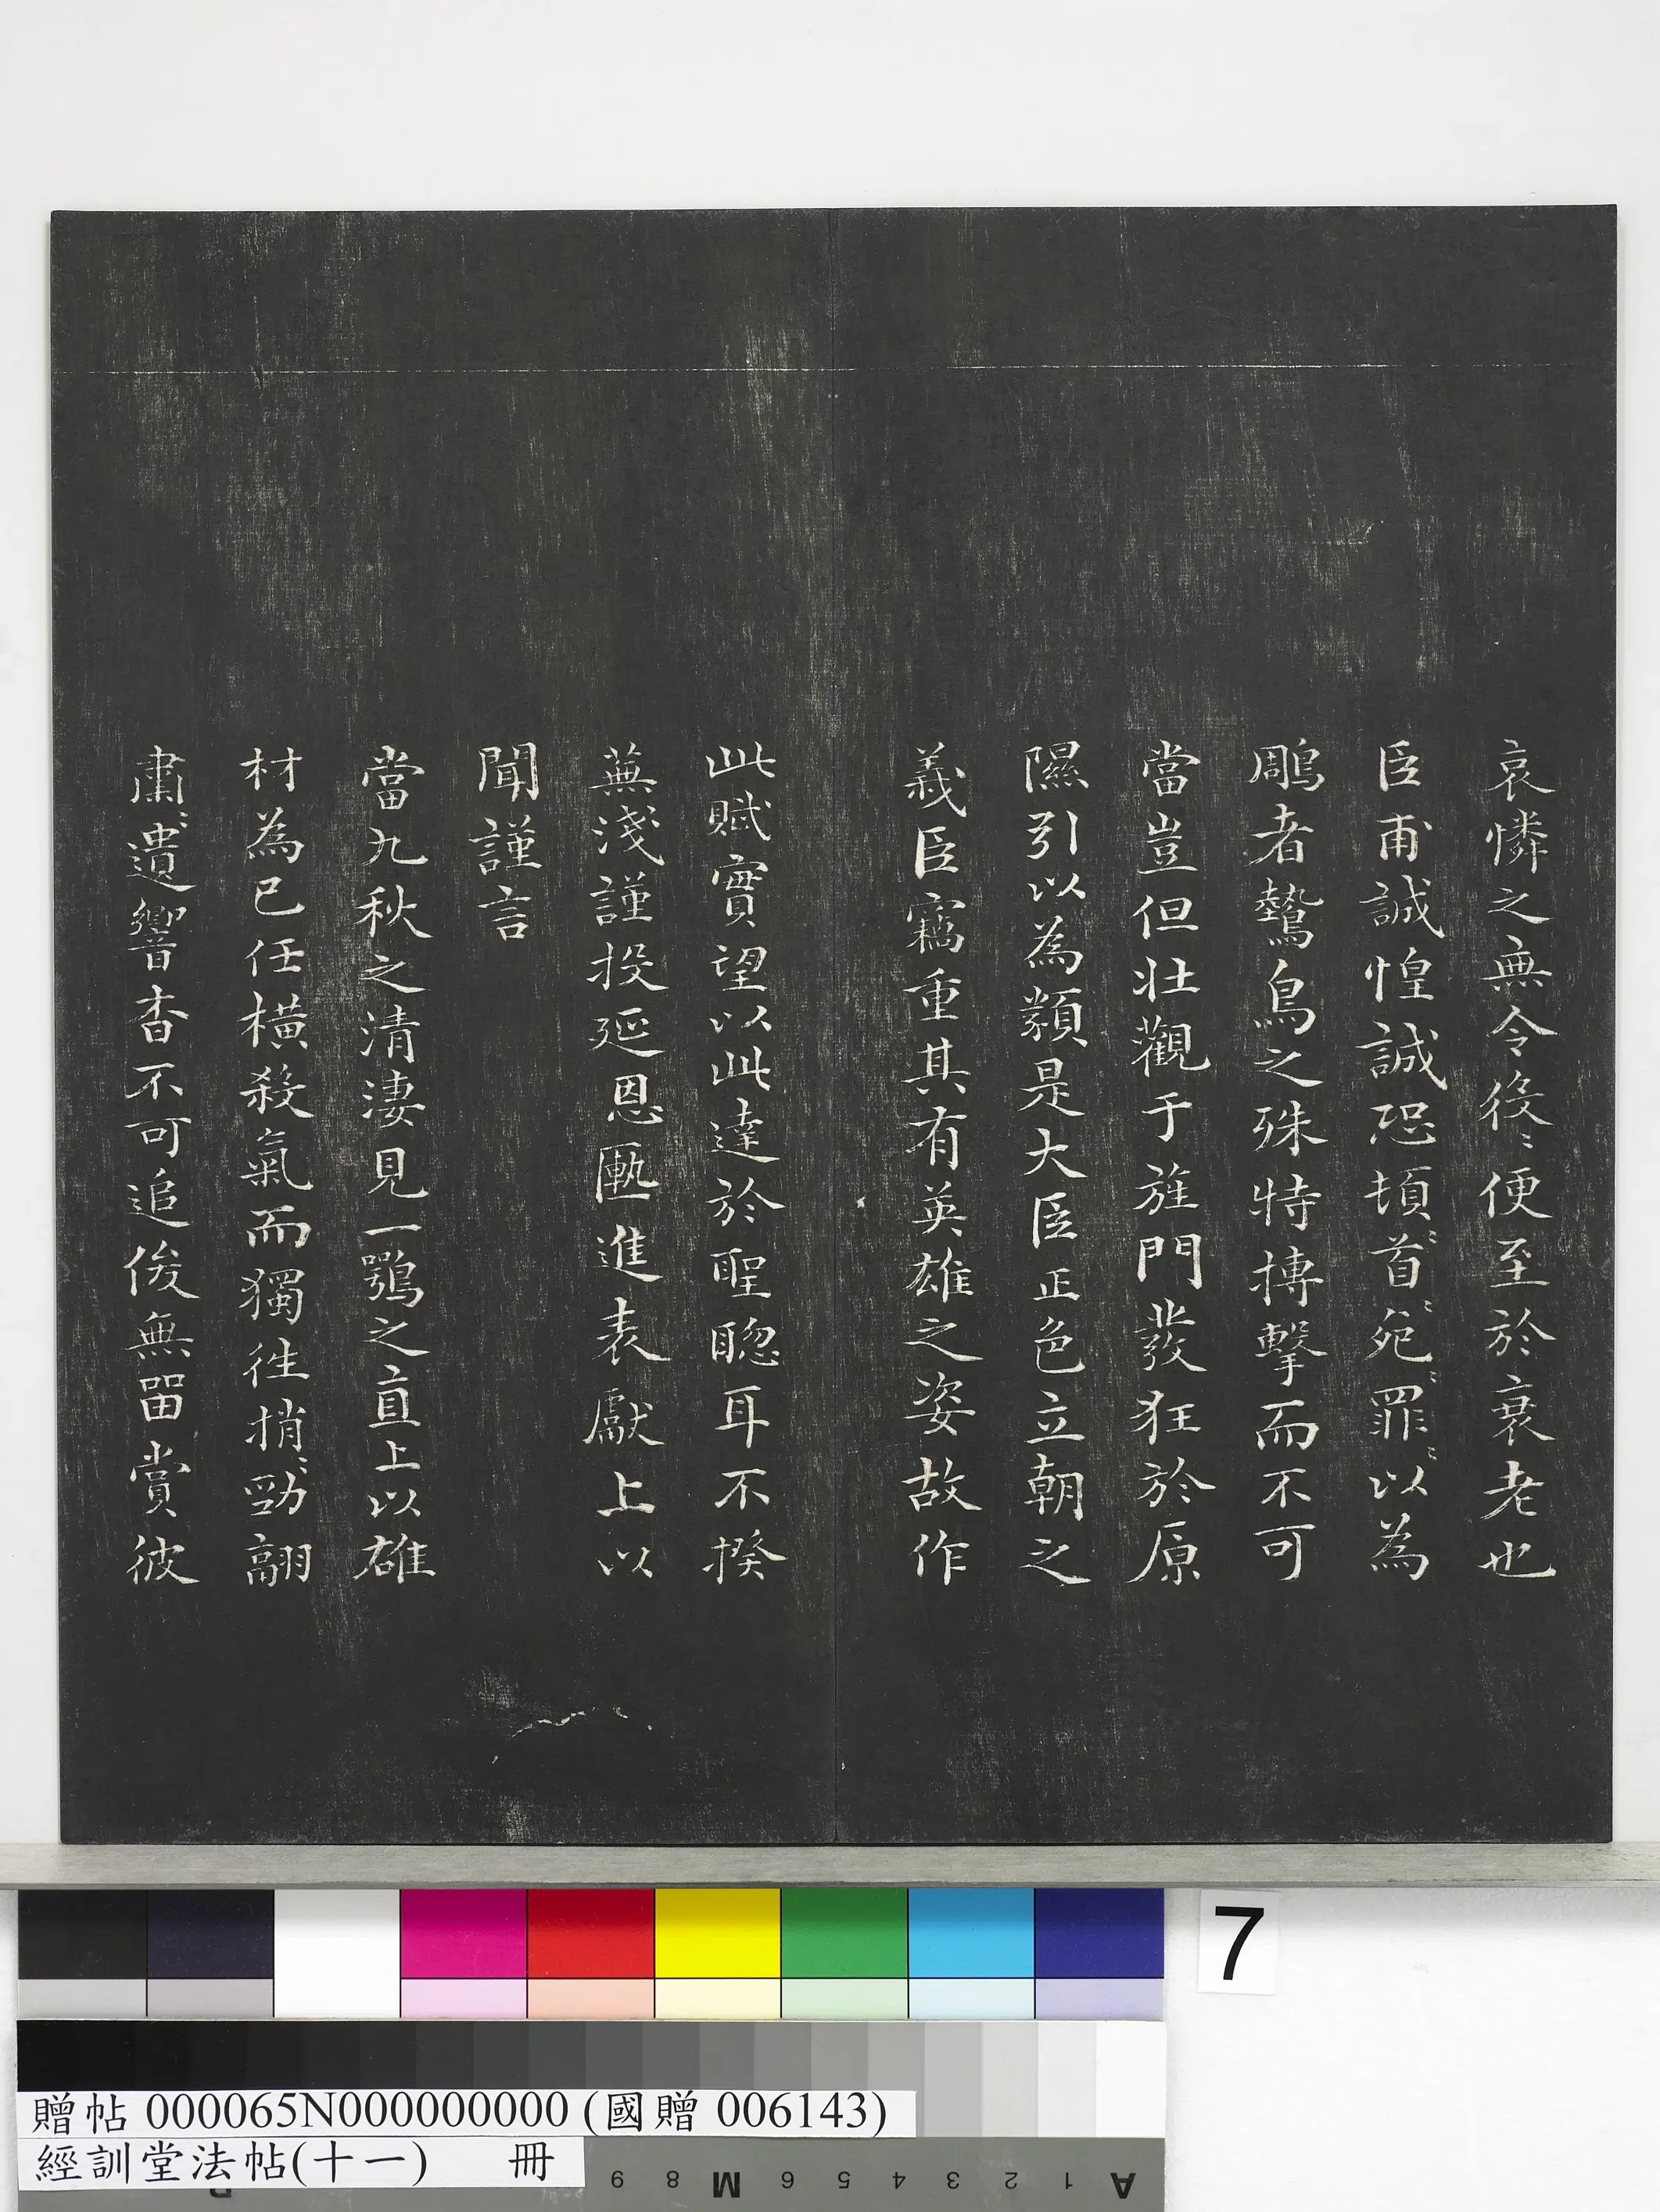 哀憐之無令役〻便至於衰老也
臣甫誠惶誠恐頓〻首〻死〻罪〻以為
鵰者鷙鳥之殊特搏擊而不可
當豈但壯觀于旌門發狂於原
隰引以為類是大臣正色立朝之
義臣竊重其有英雄之姿故作
此賦實望以此達於聖聰耳不揆
蕪淺謹投延恩匭進表獻上以
聞謹言
當九秋之清淒見一鶚之直上以雄
材為已任橫殺氣而獨往捎〻勁翮
肅〻遺響杳不可追俊無留賞彼
7
贈帖 000065N000000000 (國贈 006143)
經訓堂法帖(十一) 冊
9 8 M 6 5 4 3 2 1 A